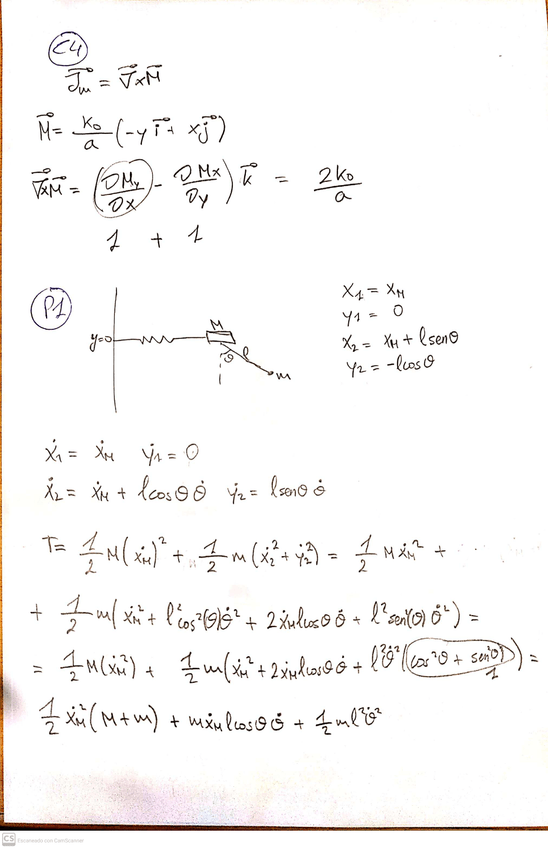 C4
J⃗m = ∇⃗xM⃗
M⃗ = K₀/a (-y i⃗ + x j⃗)
∇⃗xM⃗ = (∂My/∂x - ∂Mx/∂y) k⃗ = 2K₀/a
1 + 1
P1
y=0
M
θ
l
m
x₁ = xM
y₁ = 0
x₂ = xM + l senθ
y₂ = -l cosθ
ẋ₁ = ẋM ẏ₁ = 0
ẋ₂ = ẋM + l cosθ θ̇ ẏ₂ = l senθ θ̇
T = 1/2 M(ẋM)² + 1/2 m(ẋ₂² + ẏ₂²) = 1/2 M ẋM² +
+ 1/2 m(ẋM² + l² cos²(θ)θ̇² + 2ẋM l cosθ θ̇ + l² sen²(θ) θ̇²) =
= 1/2 M(ẋM²) + 1/2 m(ẋM² + 2ẋM l cosθ θ̇ + l²θ̇²(cos²θ + sen²θ)) =
1
1/2 ẋM² (M+m) + m ẋM l cosθ θ̇ + 1/2 m l² θ̇²
CS Escaneado con CamScanner